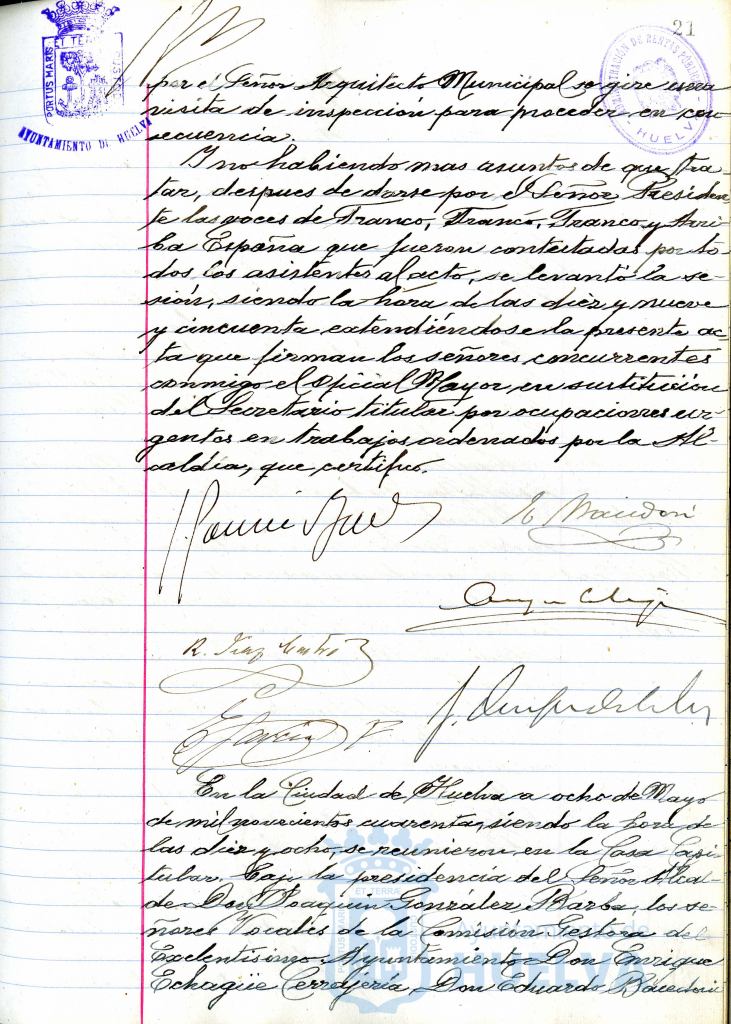 21
PORTUS MARIS
ET TERRÆ
AYUNTAMIENTO DE HUELVA
HUELVA
por el Señor Arquitecto Municipal se gire una
visita de inspección para proceder en con
secuencia.
Y no habiendo mas asuntos de que tra-
tar, despues de darse por el Señor Presiden-
te las voces de Franco, Franco, Franco y Arri-
ba España que fueron contestadas por to-
dos los asistentes al acto, se levantó la se-
sión, siendo la hora de las diez y nueve
y cincuenta, extendiéndose la presente ac-
ta que firman los señores concurrentes
conmigo el Oficial Mayor, en sustitución
del Secretario titular por ocupaciones ur-
gentes en trabajos ordenados por la Al-
caldía, que certifico.
R. Diaz
En la Ciudad de Huelva a ocho de Mayo
de mil novecientos cuarenta, siendo la hora de
las diez y ocho, se reunieron en la Casa Capi-
tular, bajo la presidencia del Señor Alcal-
de Don Joaquin González Barba los se-
ñores Vocales de la Comisión Gestora del
Exelentisimo Ayuntamiento Don Enrique
Echagüe Cerrajería, Don Eduardo
ET TERRÆ
PORTUS MARIS
HUELVA